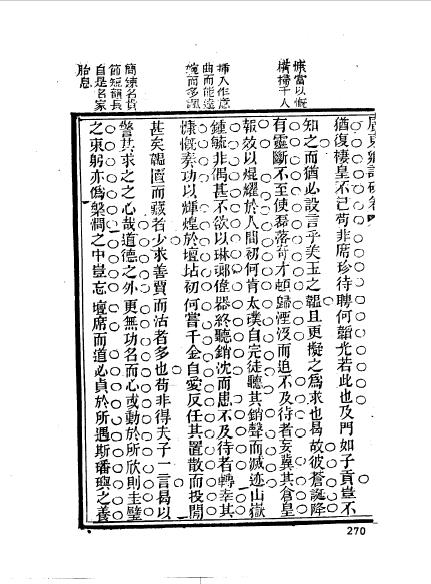 廣東鄉試硃卷
當以慨
橫掃千人
插入作意
曲而能達
婉而多諷
簡鍊名貴
節短韻長
自是名家
胎息
猶復棲皇不已苟非席珍待聘何韜光若此也及門如子貢豈不
知之而猶必設言乎美玉之韞且更擬之為求也易故彼蒼誕降
有靈斷不至使磊落奇才頓歸湮沒而迫不及待者妄冀其倉皇
報效以焜耀於人間初何肯太璞自完徒聽其銷聲而滅迹山嶽
鍾毓非偶甚不欲以琳瑯偉器終聽銷沈而迫不及待者轉幸其
慷慨奏功以輝煌於壇坫初何嘗千金自愛反任其置散而投閒
甚矣韞匵而藏者少求善賈而沽者多也苟非得夫子一言曷以
警其求之之心哉道德之外更無功名而心或動於所欣則圭璧
之束躬亦偽槃澗之中豈忘壇席而道必貞於所遇斯璠璵之養
270